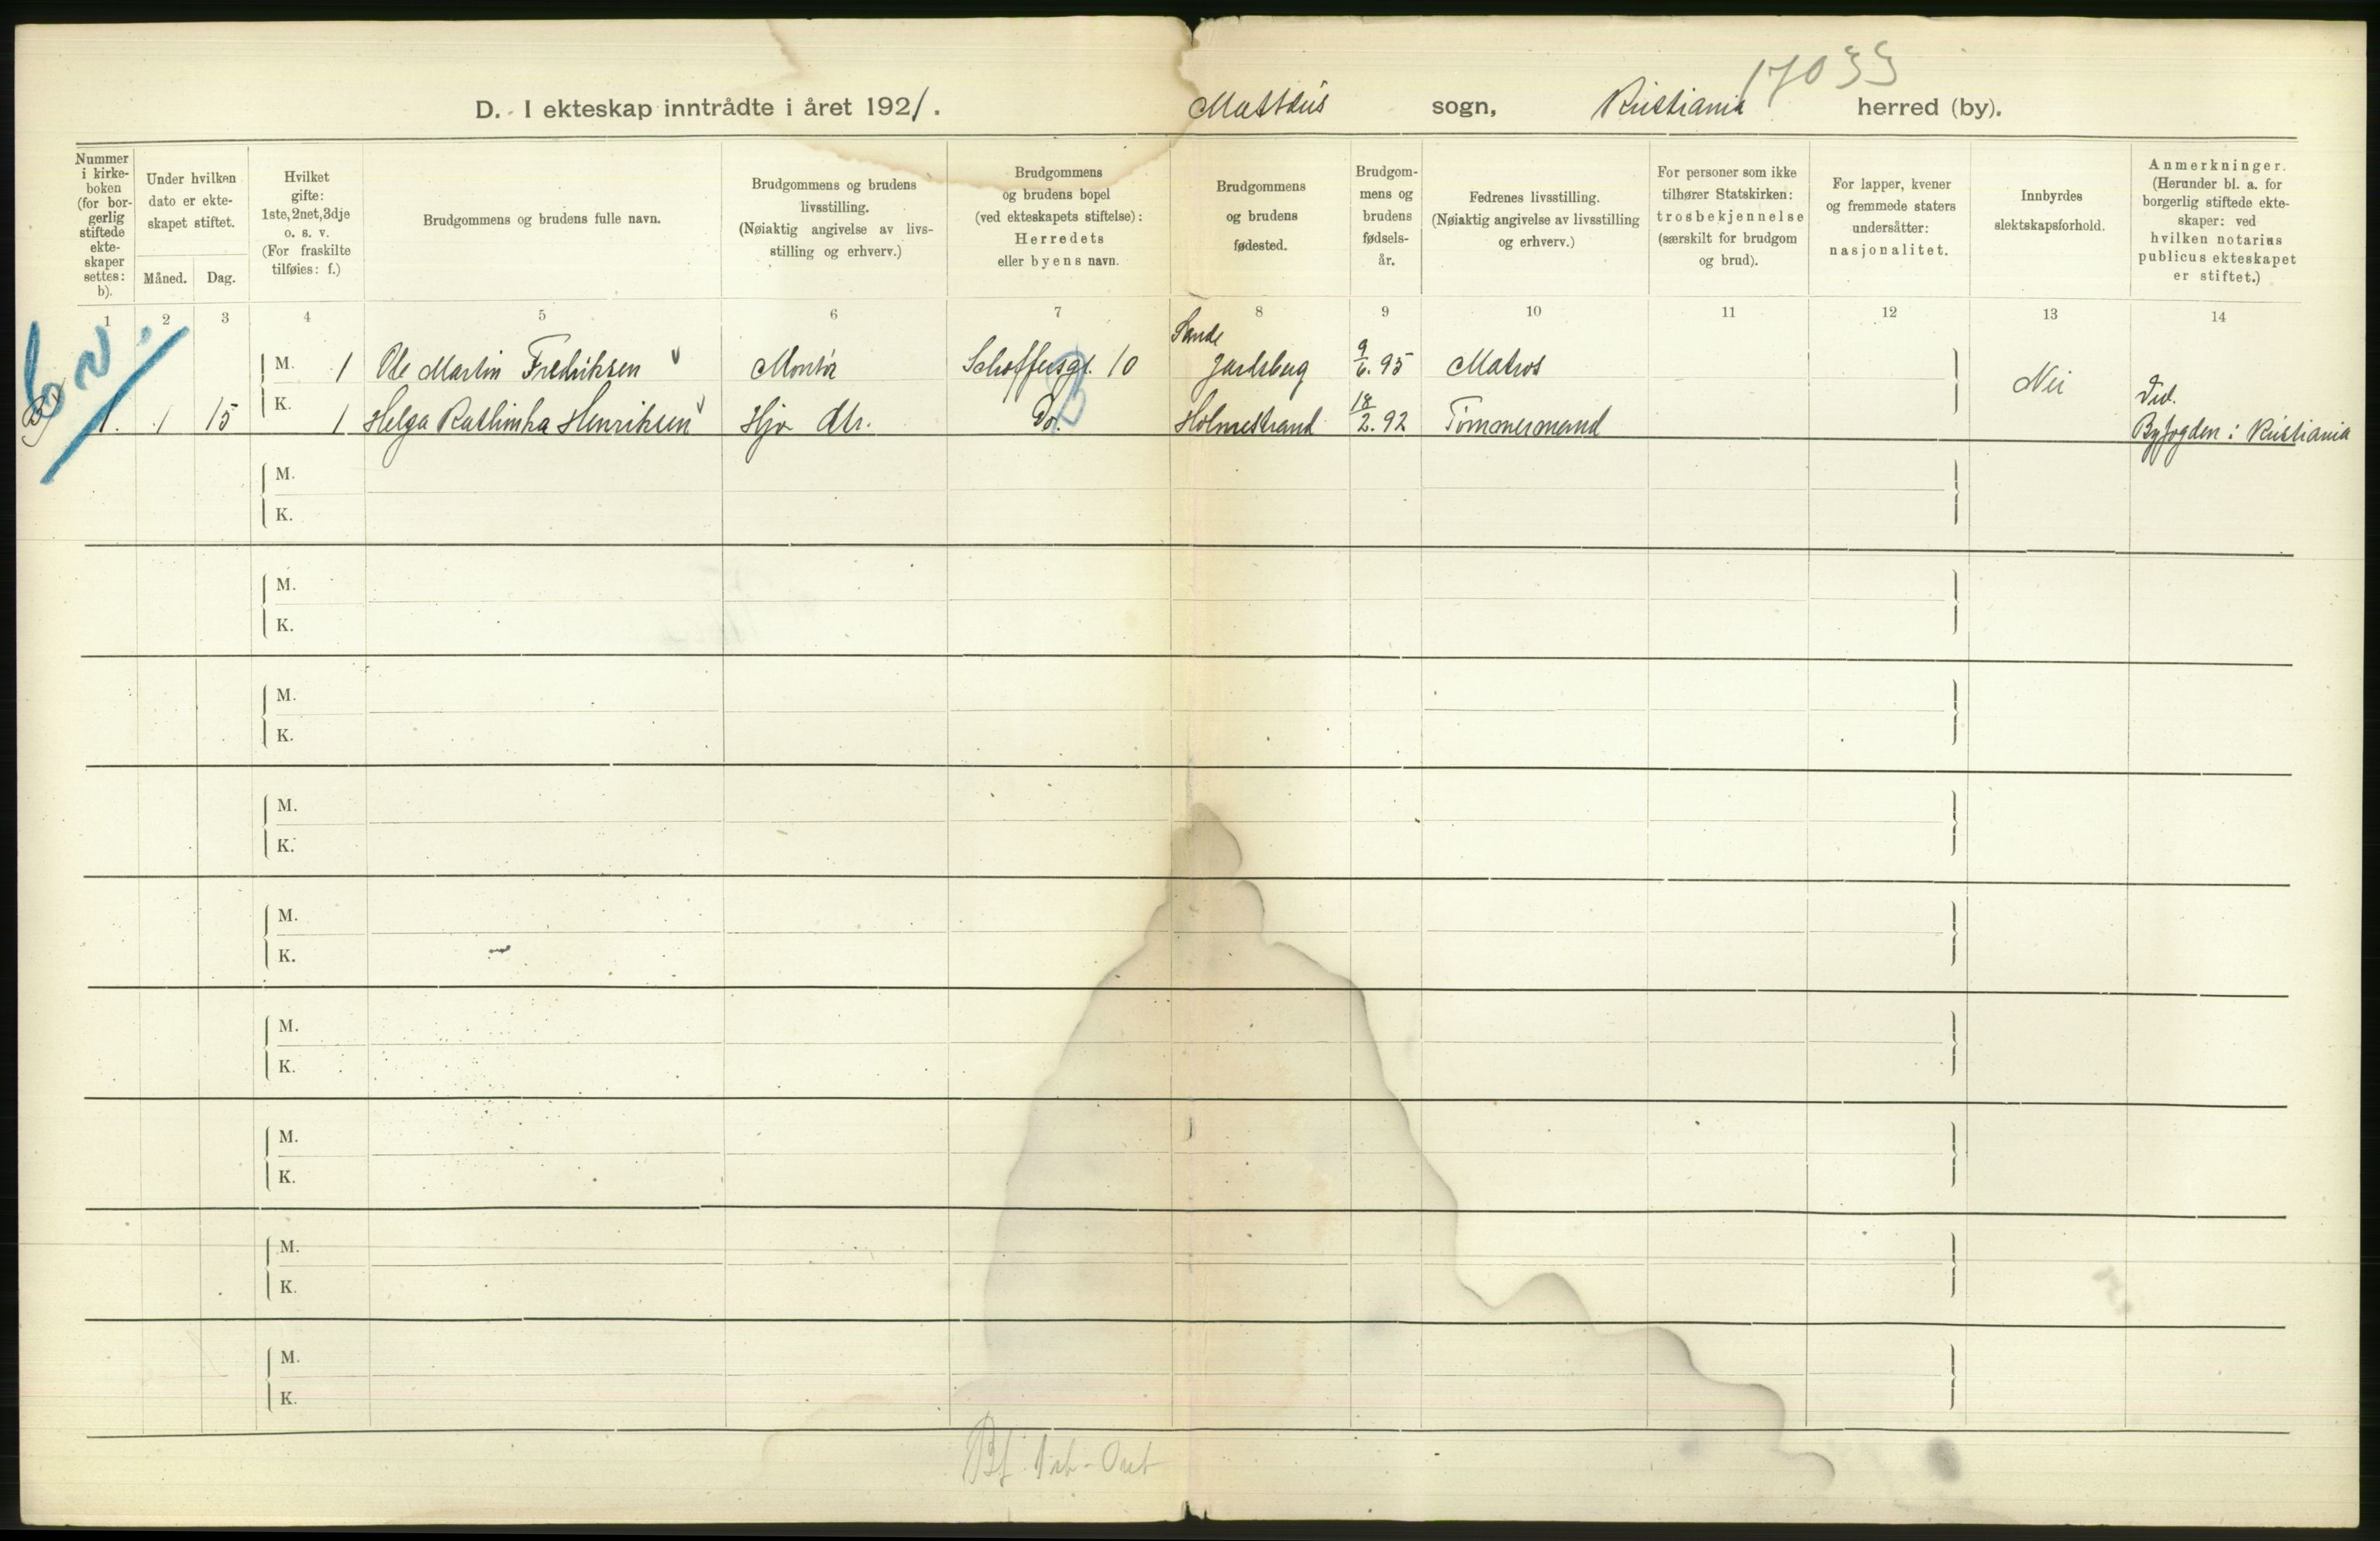 17033
D. I ekteskap inntrådte i året 1921. Mattæus sogn, Kristiania herred (by).
Nummer i kirke-boken (for bor-gerlig stiftede ekte-skaper settes: b).
Under hvilken dato er ekte-skapet stiftet.
Måned. Dag.
Hvilket gifte: 1ste, 2net, 3dje o. s. v. (For fraskilte tilføies: f.)
Brudgommens og brudens fulle navn.
Brudgommens og brudens livsstilling. (Nøiaktig angivelse av livs-stilling og erhverv.)
Brudgommens og brudens bopel (ved ekteskapets stiftelse): Herredets eller byens navn.
Brudgommens og brudens fødested.
Brudgom-mens og brudens fødsels-år.
Fedrenes livsstilling. (Nøiaktig angivelse av livsstilling og erhverv.)
For personer som ikke tilhører Statskirken: trosbekjennelse (særskilt for brudgom og brud).
For lapper, kvener og fremmede staters undersåtter: nasjonalitet.
Innbyrdes slektskapsforhold.
Anmerkninger. (Herunder bl. a. for borgerlig stiftede ekte-skaper: ved hvilken notarius publicus ekteskapet er stiftet.)
1 2 3 4 5 6 7 8 9 10 11 12 13 14
Sande
M. 1 Ole Martin Fredriksen Montør Schoffersgt. 10 Jarlsberg 9/6.95 Matros
Nei
Vid.
1. 1 15 K. 1 Helga Kathinka Henriksen Hjv Dtr. Do. Holmestrand 18/2.92 Tømmermand Byfogden i Kristiania
M.
K.
M.
K.
M.
K.
M.
K.
M.
K.
M.
K.
M.
K.
M.
K.
M.
K.